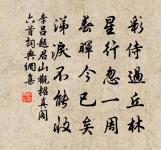 彩侍過丘林
星行忽一周
春暉今已矣
涕淚不能收
李呂題君山觀招真閣
六首詞典網集